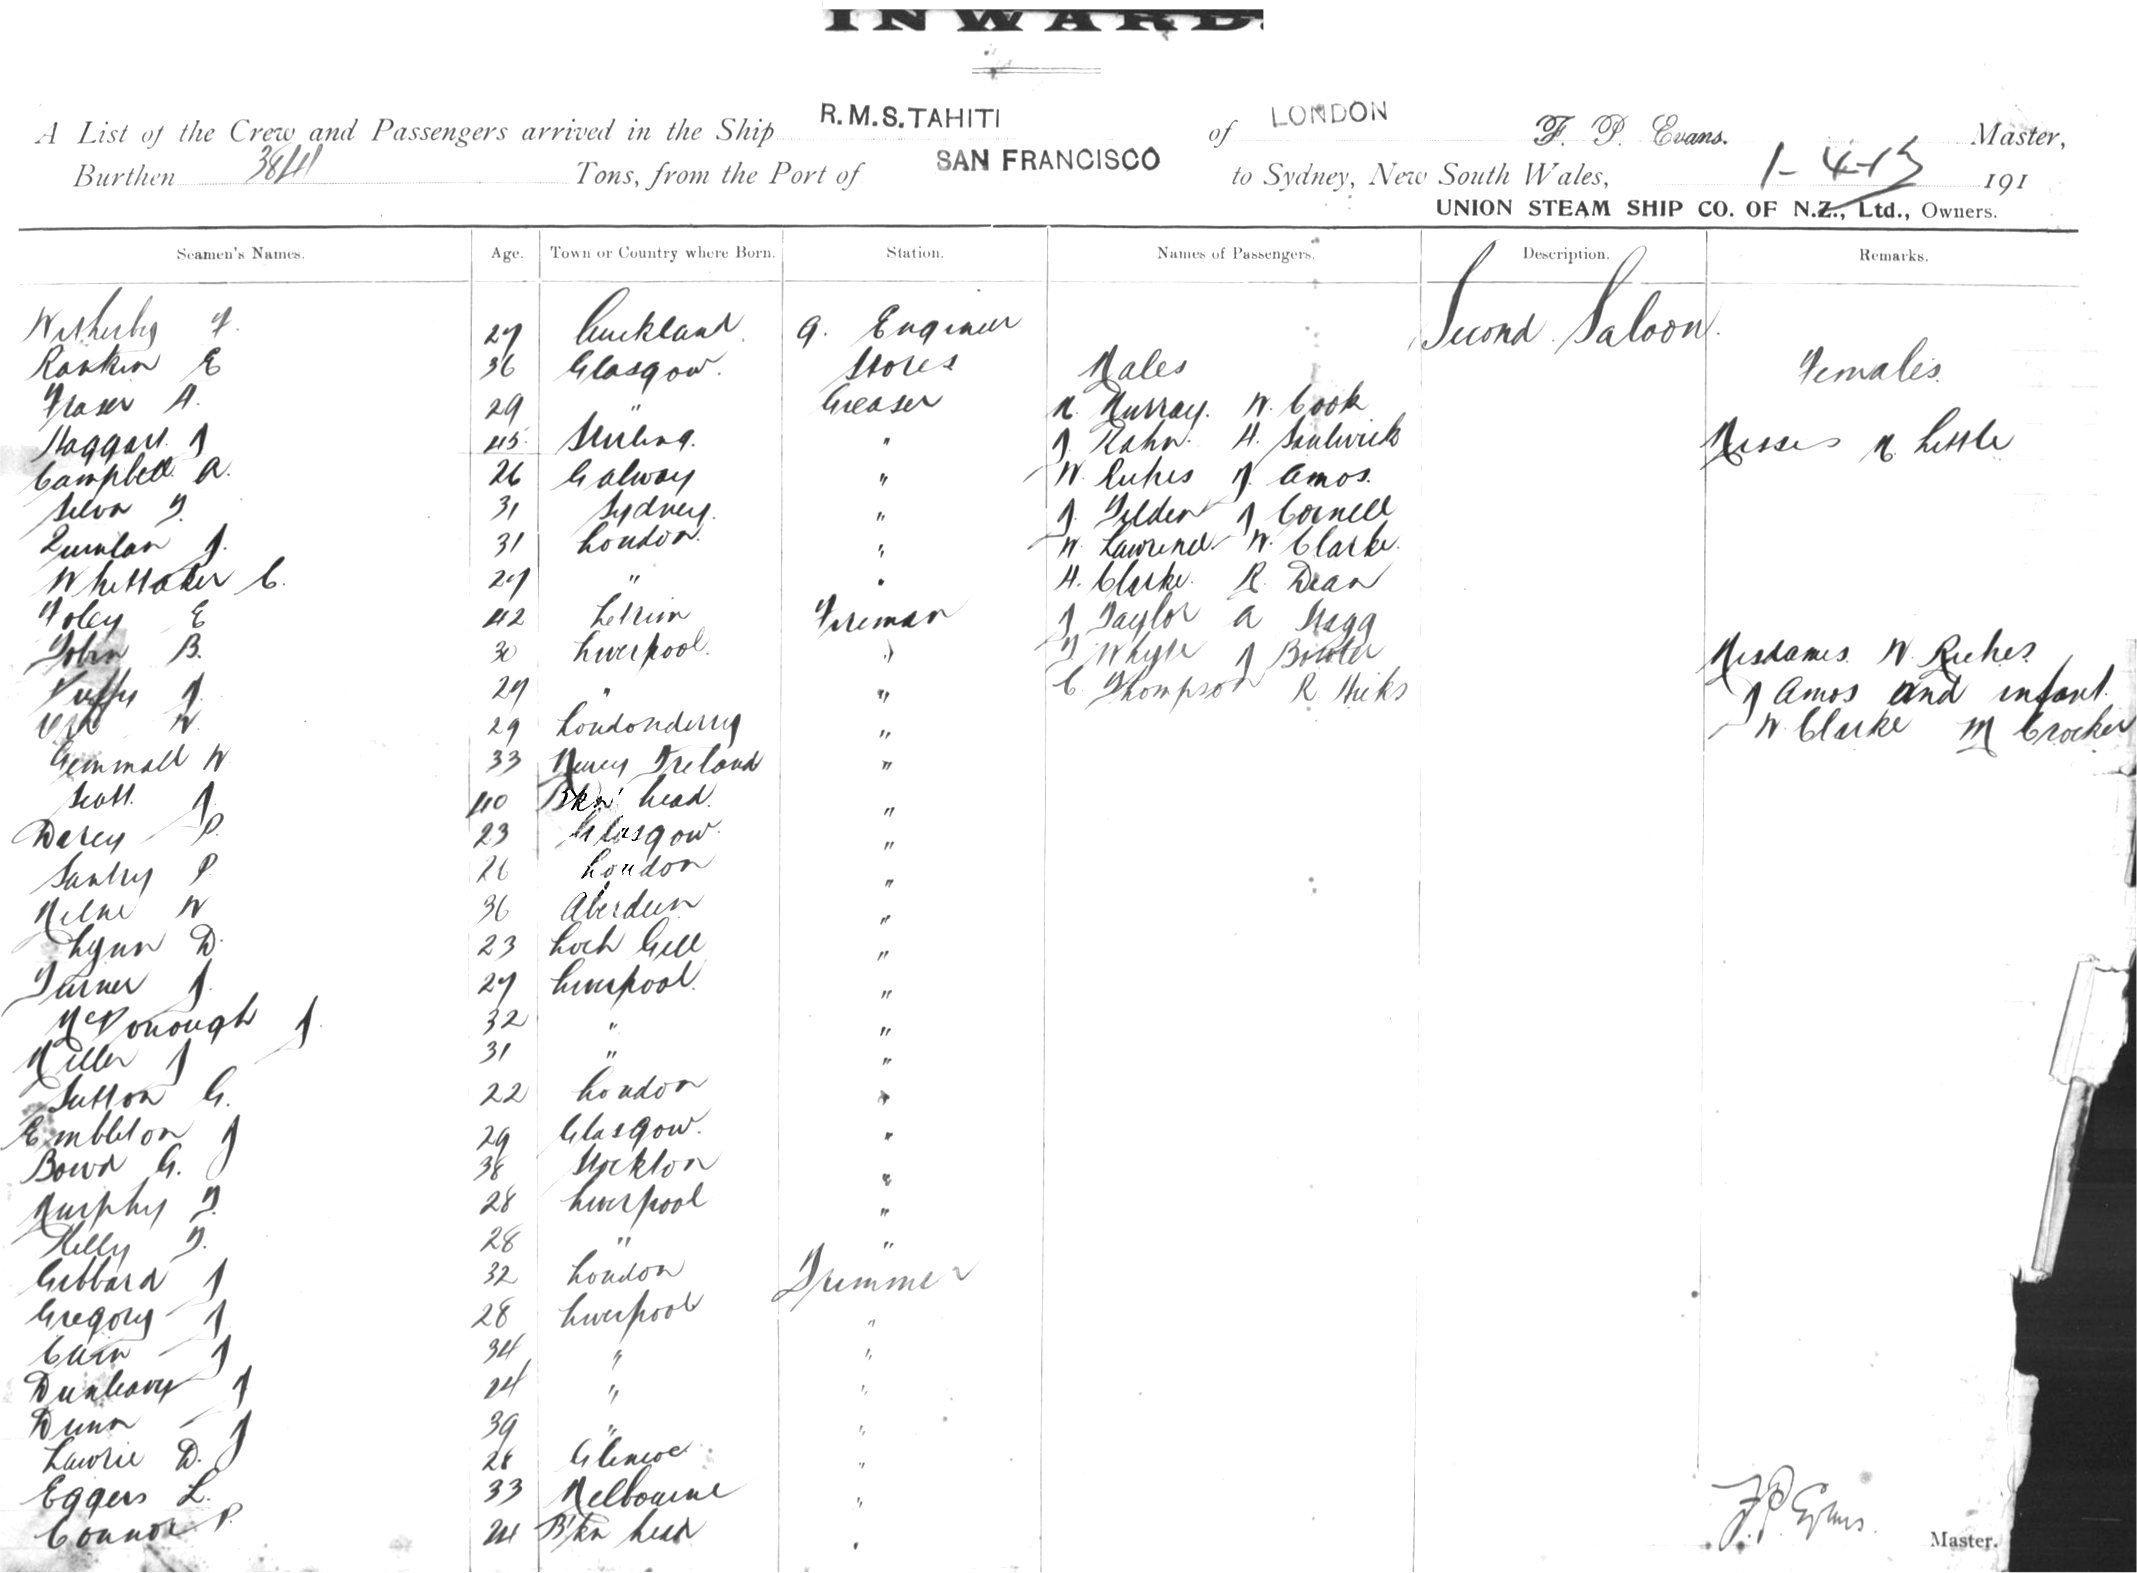 INWARD.
A List of the Crew and Passengers arrived in the Ship R.M.S. TAHITI of LONDON F. P. Evans. Master,
Burthen 3841 Tons, from the Port of SAN FRANCISCO to Sydney, New South Wales, 1-4-13 191
UNION STEAM SHIP CO. OF N.Z., Ltd., Owners.
Seamen's Names. Age. Town or Country where Born. Station. Names of Passengers. Description. Remarks.
Second Saloon.
Witherby F. 27 Auckland. A. Engineer
Rankin E 36 Glasgow. Stores Males Females.
Fraser A. 29 " Greaser M. Murray. W. Cook
Haggart J 45 Stirling. " J Rahn. H. Misses M. Little
Campbell A. 26 Galway " W. Riches J. Amos.
Silva T. 31 Sydney. " J. Tilden J Cornell
Quinlan J. 31 London. " W. Lawrence W. Clarke.
Whittaker C. 27 " " H. Clarke. R. Dean
Foley E 42 Letrim Fireman J Taylor A Stagg
Tobin B. 30 Liverpool. " T Whyte J Bowter Mesdames W. Riches.
Duffy J. 27 " " C Thompson R Hicks J Amos and infant.
Orr W. 29 Londonderry " W. Clarke M Crocker
Gemmall W 33 Newry Ireland "
Scott. J. 40 B'kn' head. "
Darcy P. 23 Glasgow. "
Santry P 26 London "
Milne W 36 Aberdeen "
Lynn D. 23 Loch Gill "
Turner J. 27 Liverpool. "
McDonough J. 32 " "
Miller J 31 " "
Sutton G. 22 London "
Embleton J 29 Glasgow. "
Bowd G. 38 Stockton "
Murphy T. 28 Liverpool "
Kelly T. 28 " "
Gibbard J 32 London Trimmer
Gregory J 28 Liverpool "
Cain J 34 " "
Dunleavy J 24 " "
Dunn J 39 " "
Lawrie D. 28 Glencoe "
Eggers L. 33 Melbourne "
Connor P. 24 B'kn head "
F. P. Evans. Master.